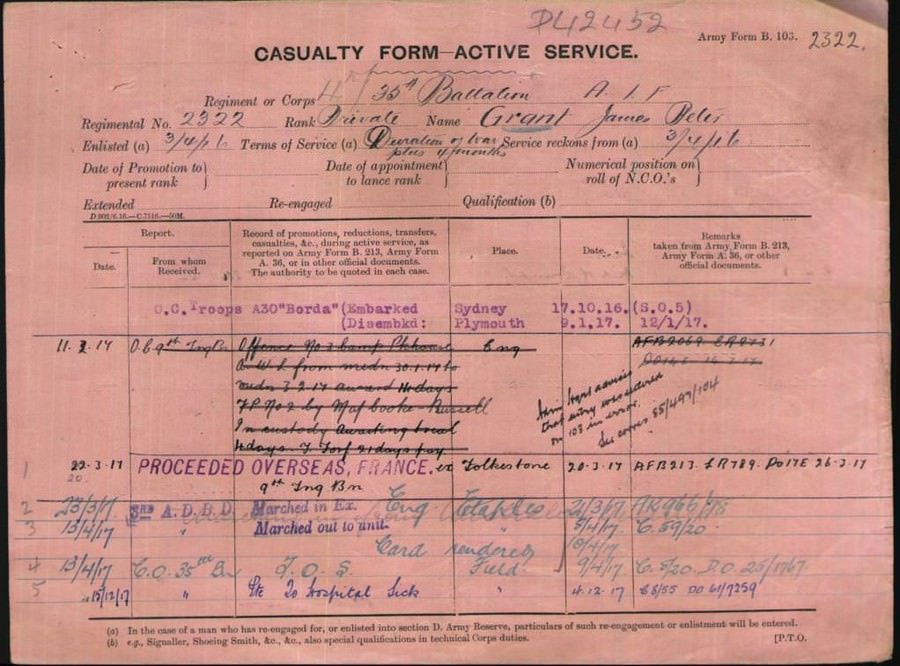 D42452
Army Form B. 103. 2322.
CASUALTY FORM—ACTIVE SERVICE.
Regiment or Corps 35th Battalion A. I. F
Regimental No. 2322 Rank Private Name Grant James Peter
Enlisted (a) 3/4/16 Terms of Service (a) Duration of War plus 4 months Service reckons from (a) 3/4/16
Date of Promotion to present rank } Date of appointment to lance rank } Numerical position on roll of N.C.O.'s }
Extended Re-engaged Qualification (b)
D 902/6.16.—C.7516.—50M.
Report.
Date.
From whom Received.
Record of promotions, reductions, transfers, casualties, &c., during active service, as reported on Army Form B. 213, Army Form A. 36, or in other official documents. The authority to be quoted in each case.
Place.
Date.
Remarks taken from Army Form B. 213, Army Form A. 36, or other official documents.
O.C.Troops A30"Borda"(Embarked Sydney 17.10.16.(S.O.5)
(Disembkd: Plymouth 9.1.17. 12/1.17.
O.C 9th Tng Bn Offence No 2 Camp Eng
A W L from 30.1.17 to
3.2.17 award 14 days
F P No 2 by Maj
In custody awaiting trial
4 days. T Forf 21 days pay
that entry was
on 103 in error.
See 55/497/104
1 22-3-17 PROCEEDED OVERSEAS, FRANCE. Folkestone 20-3-17 AFB213. D017E 26-3-17
9th Tng Bn
2 23/3/17 3RD A.D.B.D. Marched in Ex. Eng Etaples 21/3/17
3 13/4/17 " Marched out to unit. " C.59/20
Card rendered
4 13/4/17 C.O. 35th Bn T.O.S. Field. 9/4/17 D.O. 25/1767
5 15/12/17 " Pte To Hospital Sick " 4.12.17 DO 61/7259
(a) In the case of a man who has re-engaged for, or enlisted into section D. Army Reserve, particulars of such re-engagement or enlistment will be entered.
(b) e.g., Signaller, Shoeing Smith, &c., &c., also special qualifications in technical Corps duties. [P.T.O.